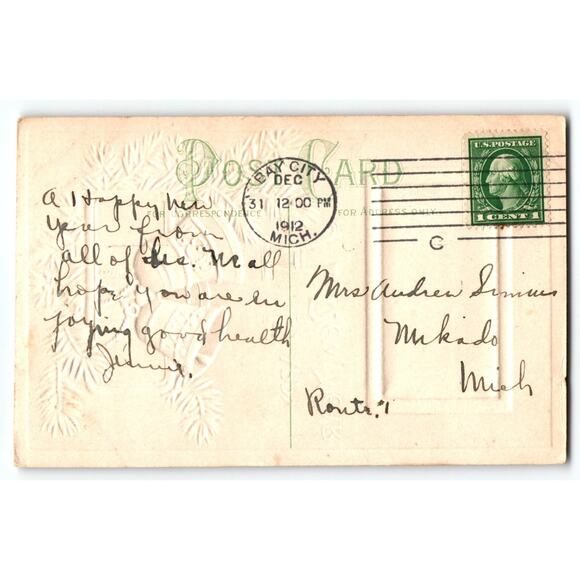 POST CARD
FOR CORRESPONDENCE
FOR ADDRESS ONLY
BAY CITY
DEC
31 12:00 PM
1912
MICH.
C
U.S. POSTAGE
1 CENT 1
A Happy New
Year from
all of us. We all
hope you are en
joying good health
Jennie.
Mrs Andrew Simms
Mikado
Mich
Route. 1